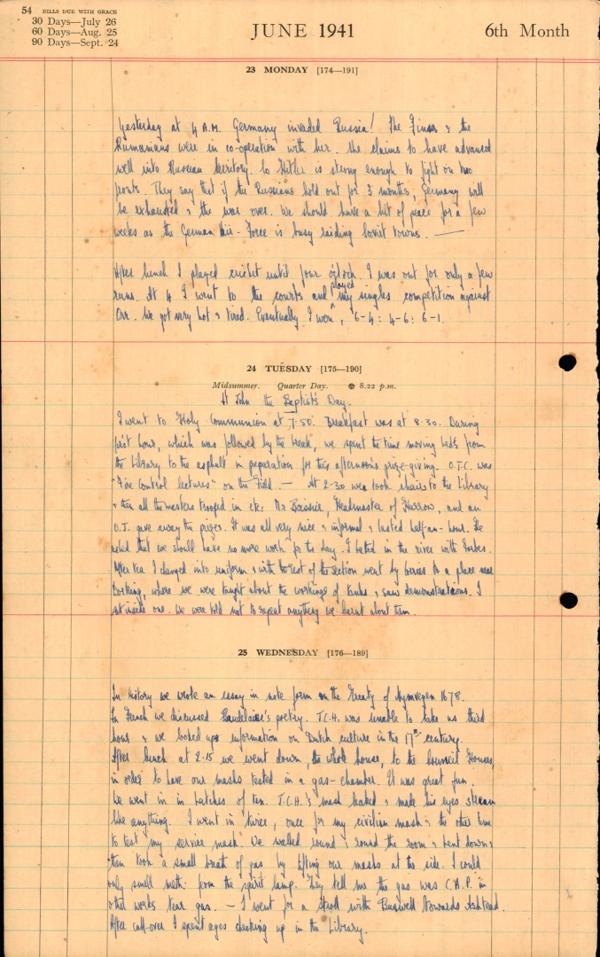 54 BILLS DUE WITH GRACE
30 Days—July 26
60 Days—Aug. 25
90 Days—Sept. 24
JUNE 1941
6th Month
23 MONDAY [174—191]
Yesterday at 4 A.M. Germany invaded Russia! The Finns & the
Rumanians were in co-operation with her. She claims to have advanced
well into Russian territory. So Hitler is strong enough to fight on two
fronts. They say that if the Russians hold out for 3 months, Germany will
be exhausted & the war over. We should have a bit of peace for a few
weeks as the German Air-Force is busy raiding Soviet towns. —
After lunch I played cricket until four o'clock. I was out for only a few
runs. At 4 I went to the courts and played my singles competition against
Orr. We got very hot & tired. Eventually I won, 6-4: 4-6: 6-1.
24 TUESDAY [175—190]
Midsummer. Quarter Day. 8.22 p.m.
St John the Baptist's Day.
I went to Holy Communion at 7.50. Breakfast was at 8.30. During
first hour, which was followed by the break, we spent the time moving beds from
the Library to the asphalt in preparation for this afternoon's prize-giving. O.T.C. was
"Fire control lectures" on the Field. — At 2.30 we took chairs to the Library
& then all the masters trooped in etc. Mr Boissier, Headmaster of Harrow, and an
O.J. gave away the prizes. It was all very nice & informal & lasted half-an-hour. He
asked that we should have no more work for the day. I bathed in the river with Forbes.
After tea I changed into uniform & with the rest of the section went by bus to a place near
Dorking, where we were taught about the workings of tanks & saw demonstrations. I
sat inside one. We were told not to repeat anything we learnt about them.
25 WEDNESDAY [176—189]
In History we wrote an essay in note form on the Treaty of Nymwegen 1678.
In French we discussed Baudelaire's poetry. T.C.H. was unable to take us third
hour & we looked up information on Dutch culture in the 17th century.
After lunch at 2.15 we went down, the whole house, to the Council Houses,
in order to have our masks tested in a gas-chamber. It was great fun.
We went in in batches of ten. T.C.H.'s mask leaked & made his eyes stream
like anything. I went in twice, once for my civilian mask & the other time
to test my service mask. We walked round & round the room & bent down &
then took a small breath of gas by lifting our masks at the side. I could
only smell meth. from the spirit lamp. They tell me the gas was C.A.P. in
other words tear gas. — I went for a stroll with towards Ashtead.
After call-over I spent ages checking up in the Library.